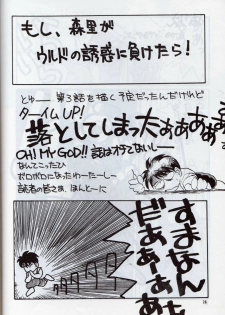 もし、森里が
ウルドの誘惑に負けたら!
とゅー 第3話を描く予定だったんだけれど
ターイムUP!
落としてしまったぁぁぁぁぁ
OH! My GOD!! 話はオチてないしー
なんてこったひ
ボロボロになったゆーたーしー
読者の皆さま、ほんとーに
すまなん
だぁぁーぁぁ
タタタタタ
16